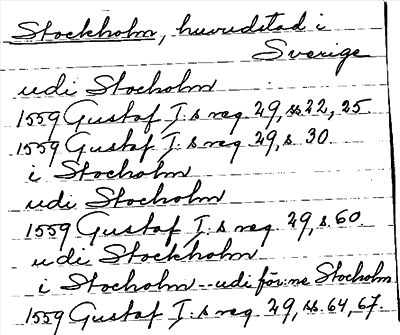 Stockholm, huvudstad i
Sverige
udi Stocholm
1559 Gustaf I:s reg. 29, ss. 22, 25.
1559 Gustaf I:s reg. 29, s. 30.
i Stocholm
udi Stocholm
1559 Gustaf I:s reg. 29, s. 60.
udi Stockholm
i Stocholm -- udi för:ne Stocholm
1559 Gustaf I:s reg. 29, ss. 64, 67.